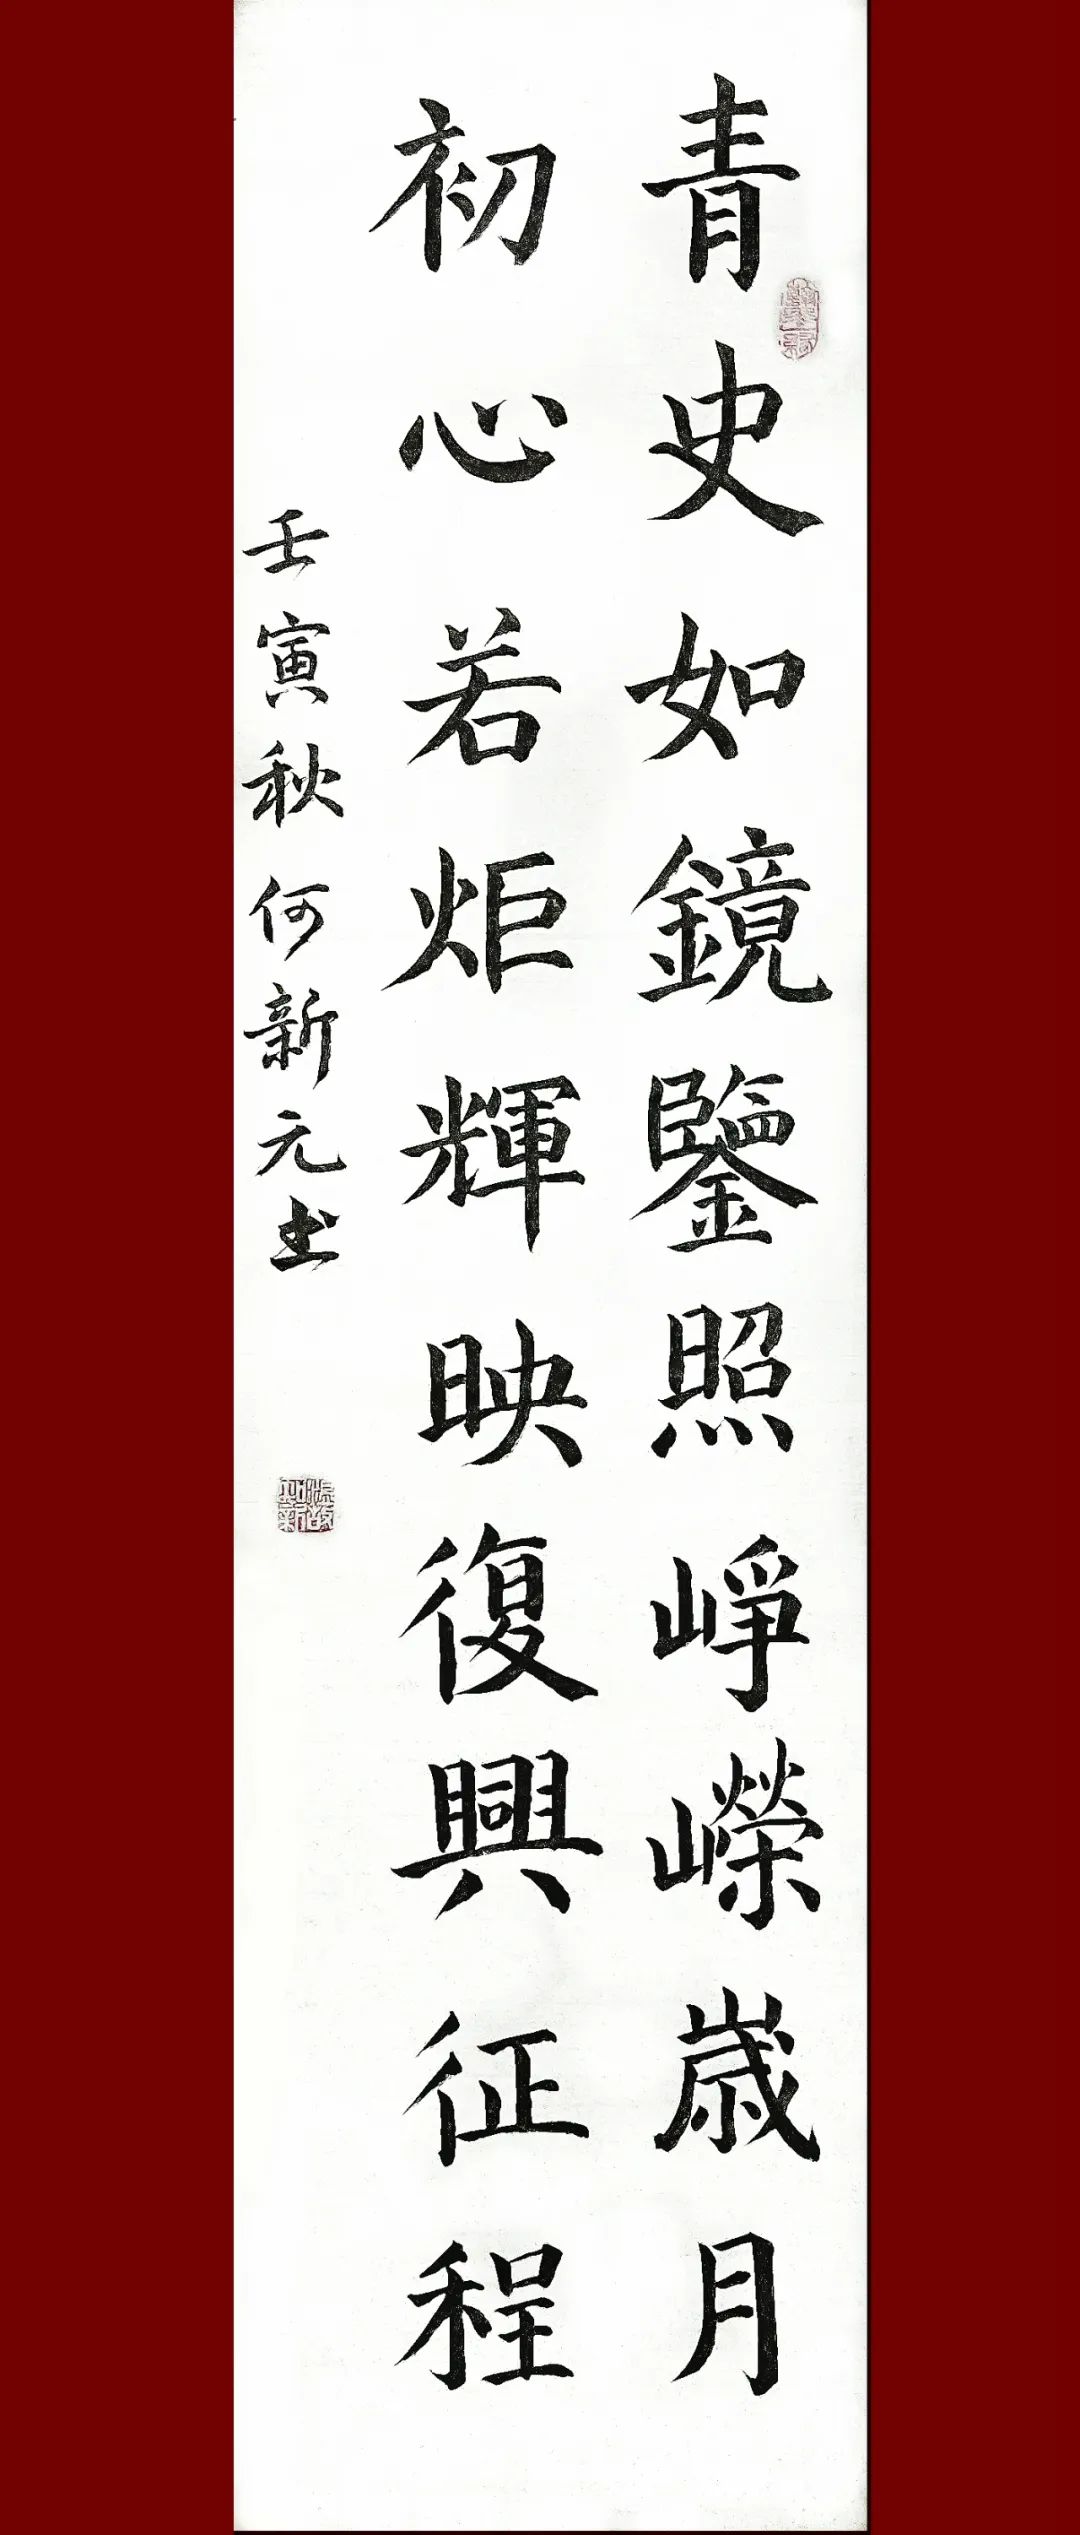 青史如鏡鑒照崢嶸歲月
初心若炬輝映復興征程
壬寅秋何新元书